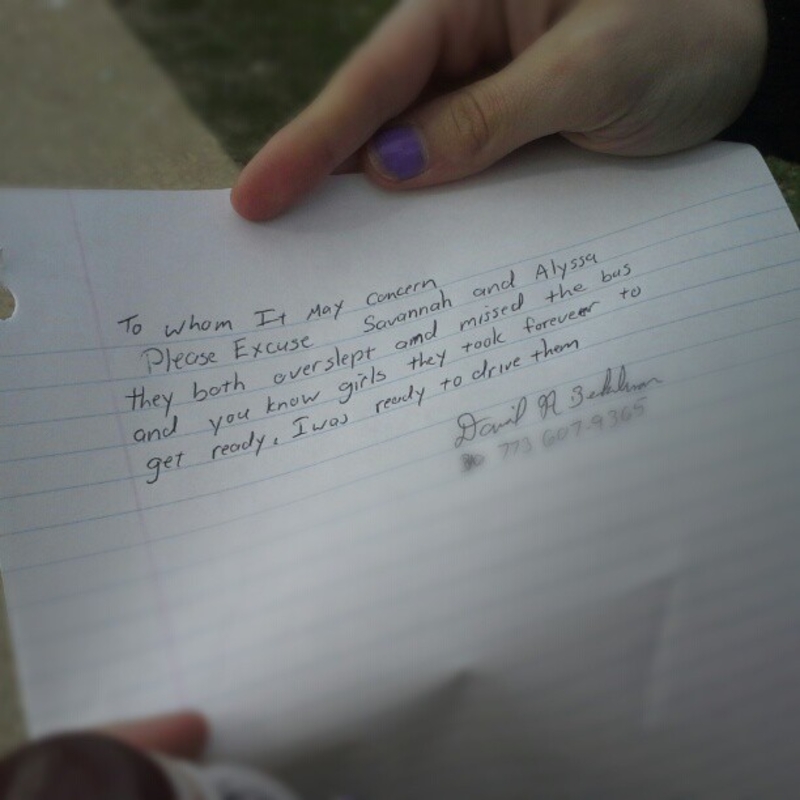 To whom It May Concern
Please Excuse Savannah and Alyssa
they both overslept and missed the bus
and you know girls they took foreveer to
get ready, I was ready to drive them
David R
773 607-9365